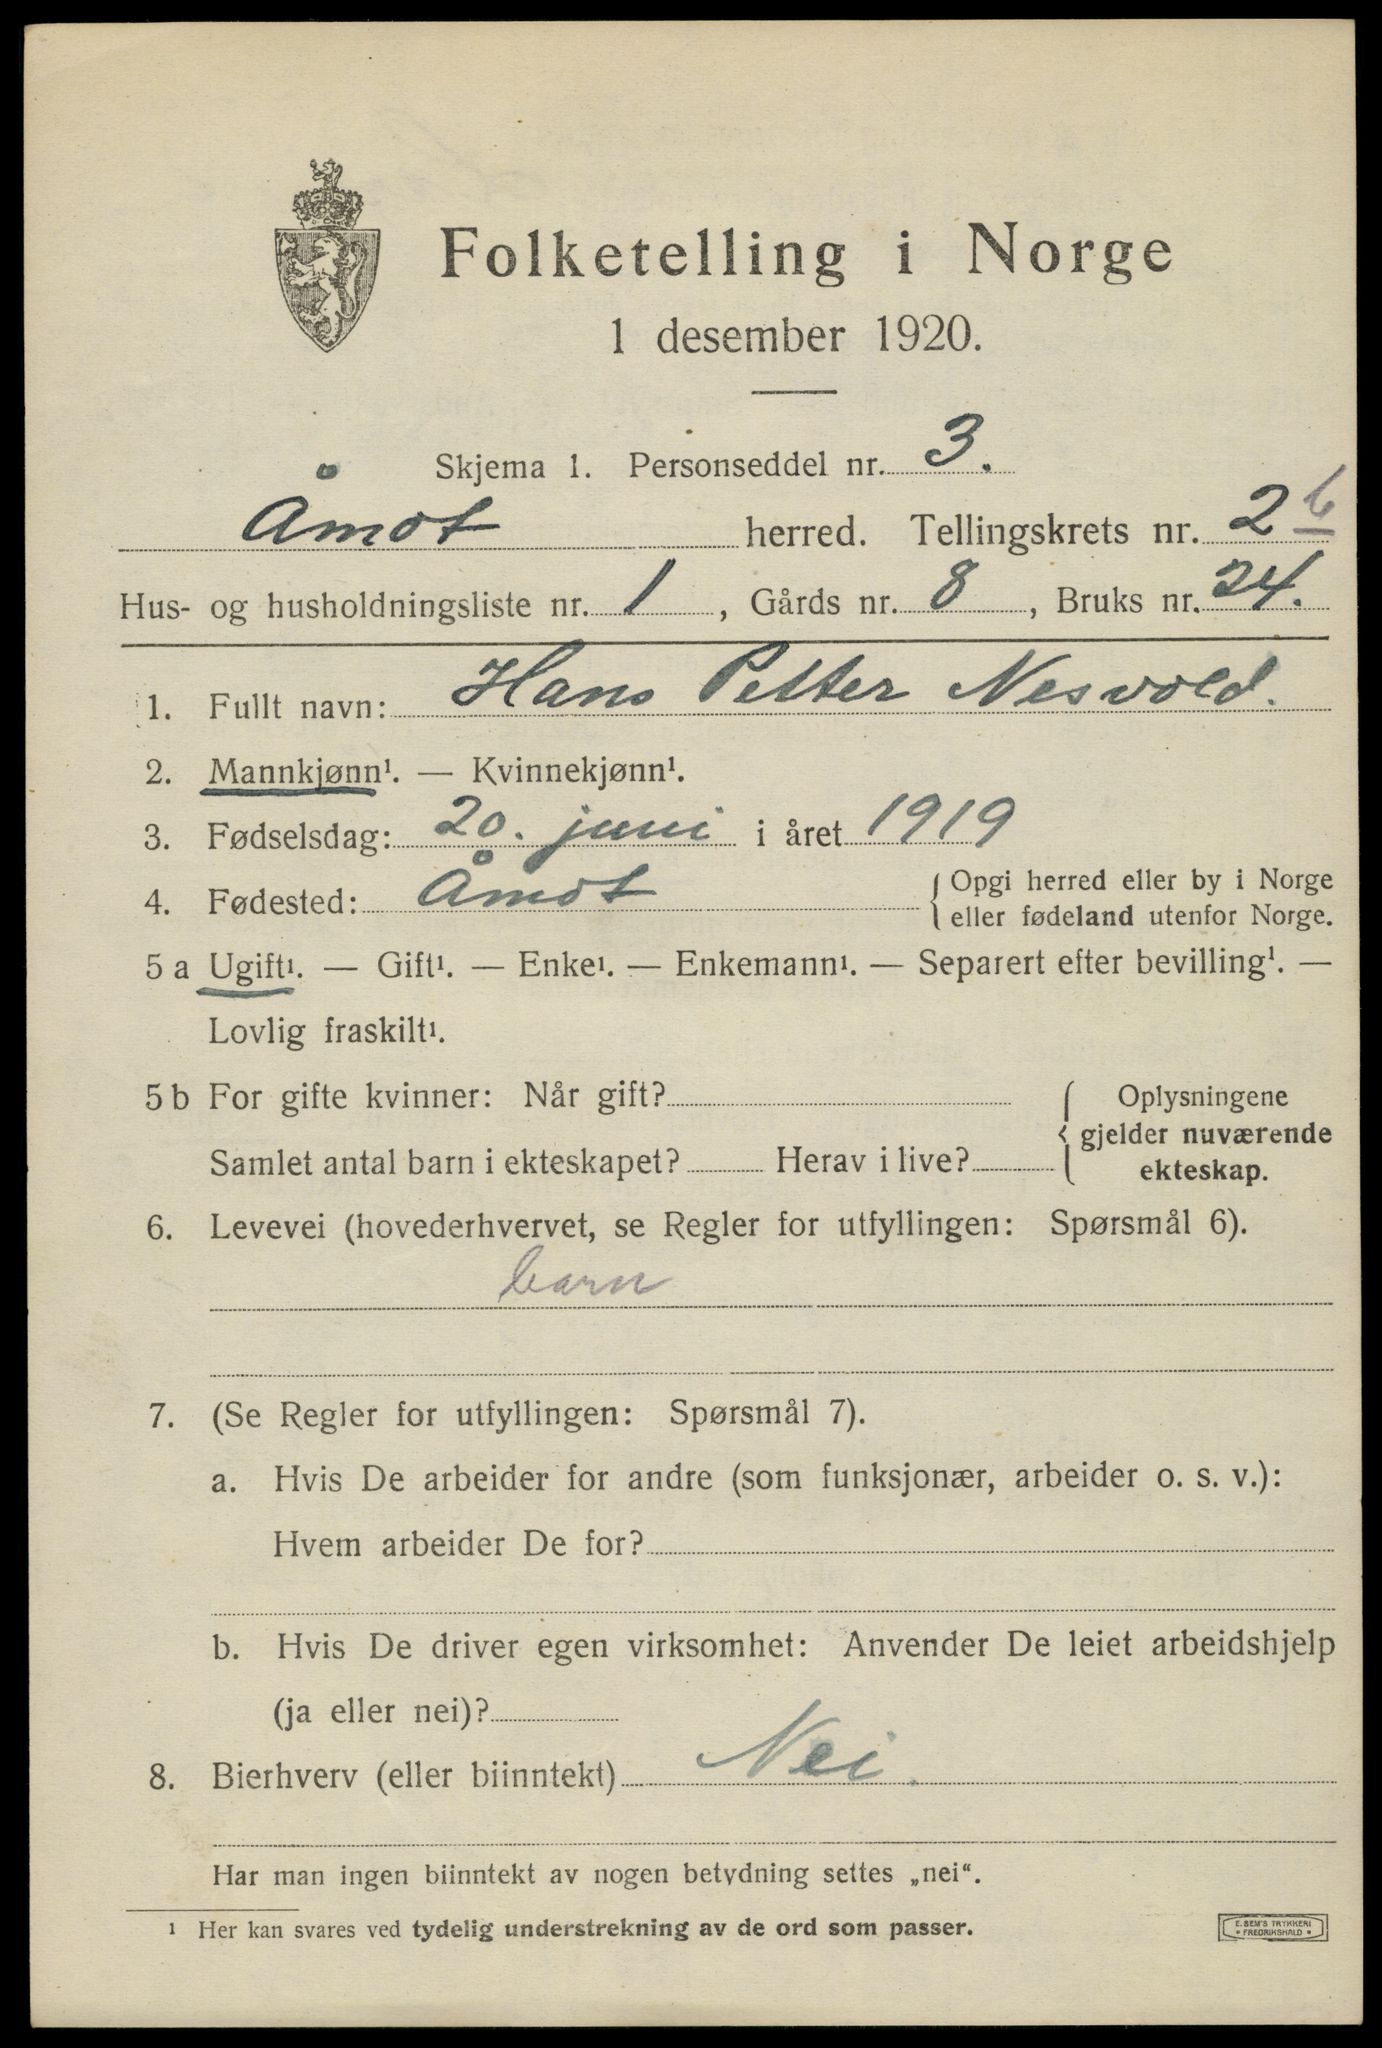 Folketelling i Norge
1 desember 1920.
Skjema 1. Personseddel nr. 3.
Åmot herred. Tellingskrets nr. 2 b
Hus- og husholdningsliste nr. 1, Gårds nr. 8, Bruks nr. 24.
1. Fullt navn: Hans Petter Nesvold.
2. Mannkjønn¹. — Kvinnekjønn¹.
3. Fødselsdag: 20. juni i året 1919
4. Fødested: Åmot {Opgi herred eller by i Norge
eller fødeland utenfor Norge.
5 a Ugift¹. — Gift¹. — Enke¹. — Enkemann¹. — Separert efter bevilling¹. —
Lovlig fraskilt¹.
5 b For gifte kvinner: Når gift? Oplysningene
gjelder nuværende
Samlet antal barn i ekteskapet? Herav i live? ekteskap.
6. Levevei (hovederhvervet, se Regler for utfyllingen: Spørsmål 6).
barn
7. (Se Regler for utfyllingen: Spørsmål 7).
a. Hvis De arbeider for andre (som funksjonær, arbeider o. s. v.):
Hvem arbeider De for?
b. Hvis De driver egen virksomhet: Anvender De leiet arbeidshjelp
(ja eller nei)?
8. Bierhverv (eller biinntekt) Nei.
Har man ingen biinntekt av nogen betydning settes „nei“.
¹ Her kan svares ved tydelig understrekning av de ord som passer.
E. SEM'S TRYKKERI
• FREDRIKSHALD •